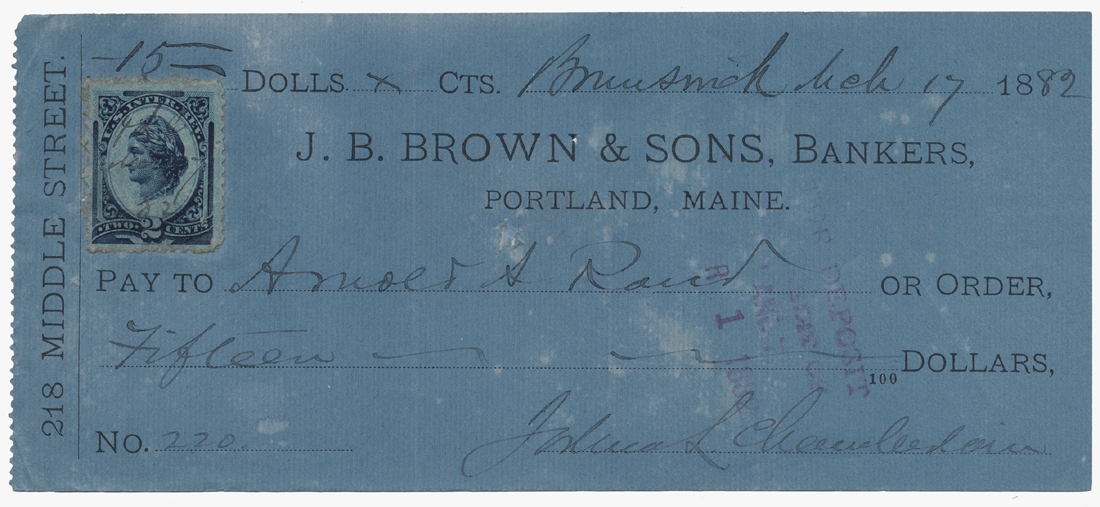 218 MIDDLE STREET.
15 DOLLS. x CTS. Brunswick Mch 17 1882
U.S. INTER. REV.
TWO 2 CENTS
J. B. BROWN & SONS, BANKERS,
PORTLAND, MAINE.
PAY TO Arnold A Rand OR ORDER,
Fifteen 100 DOLLARS,
NO. 220. Joshua L Chamberlain
DEPOSIT